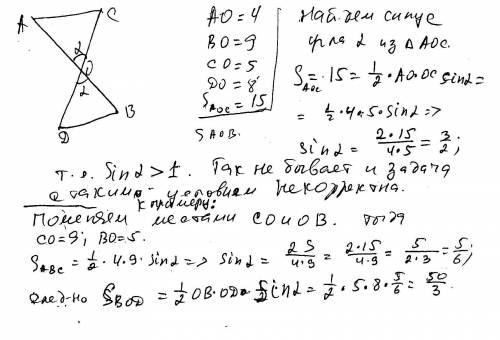 A C O α α D B
AO=4
BO=9
CO=5
DO=8
S_AOC=15
S AOB.
Найдем синус
угла α из ΔAOC.
S_AOC=15=1/2·AO·OC sinα=
=1/2·4·5·sinα=>
sinα=2·15/4·5=3/2;
т.е. Sinα>1. Так не бывает и задача
с таким условием некорректна.
К примеру:
Поменяем местами CO и OB. тогда
CO=9; BO=5.
S_ABC=1/2·4·9·sinα=>sinα=2S/4·9=2·15/4·9=5/2·3=5/6;
след-но S_BOD=1/2 OB·OD· sinα=1/2·5·8·5/6=50/3.